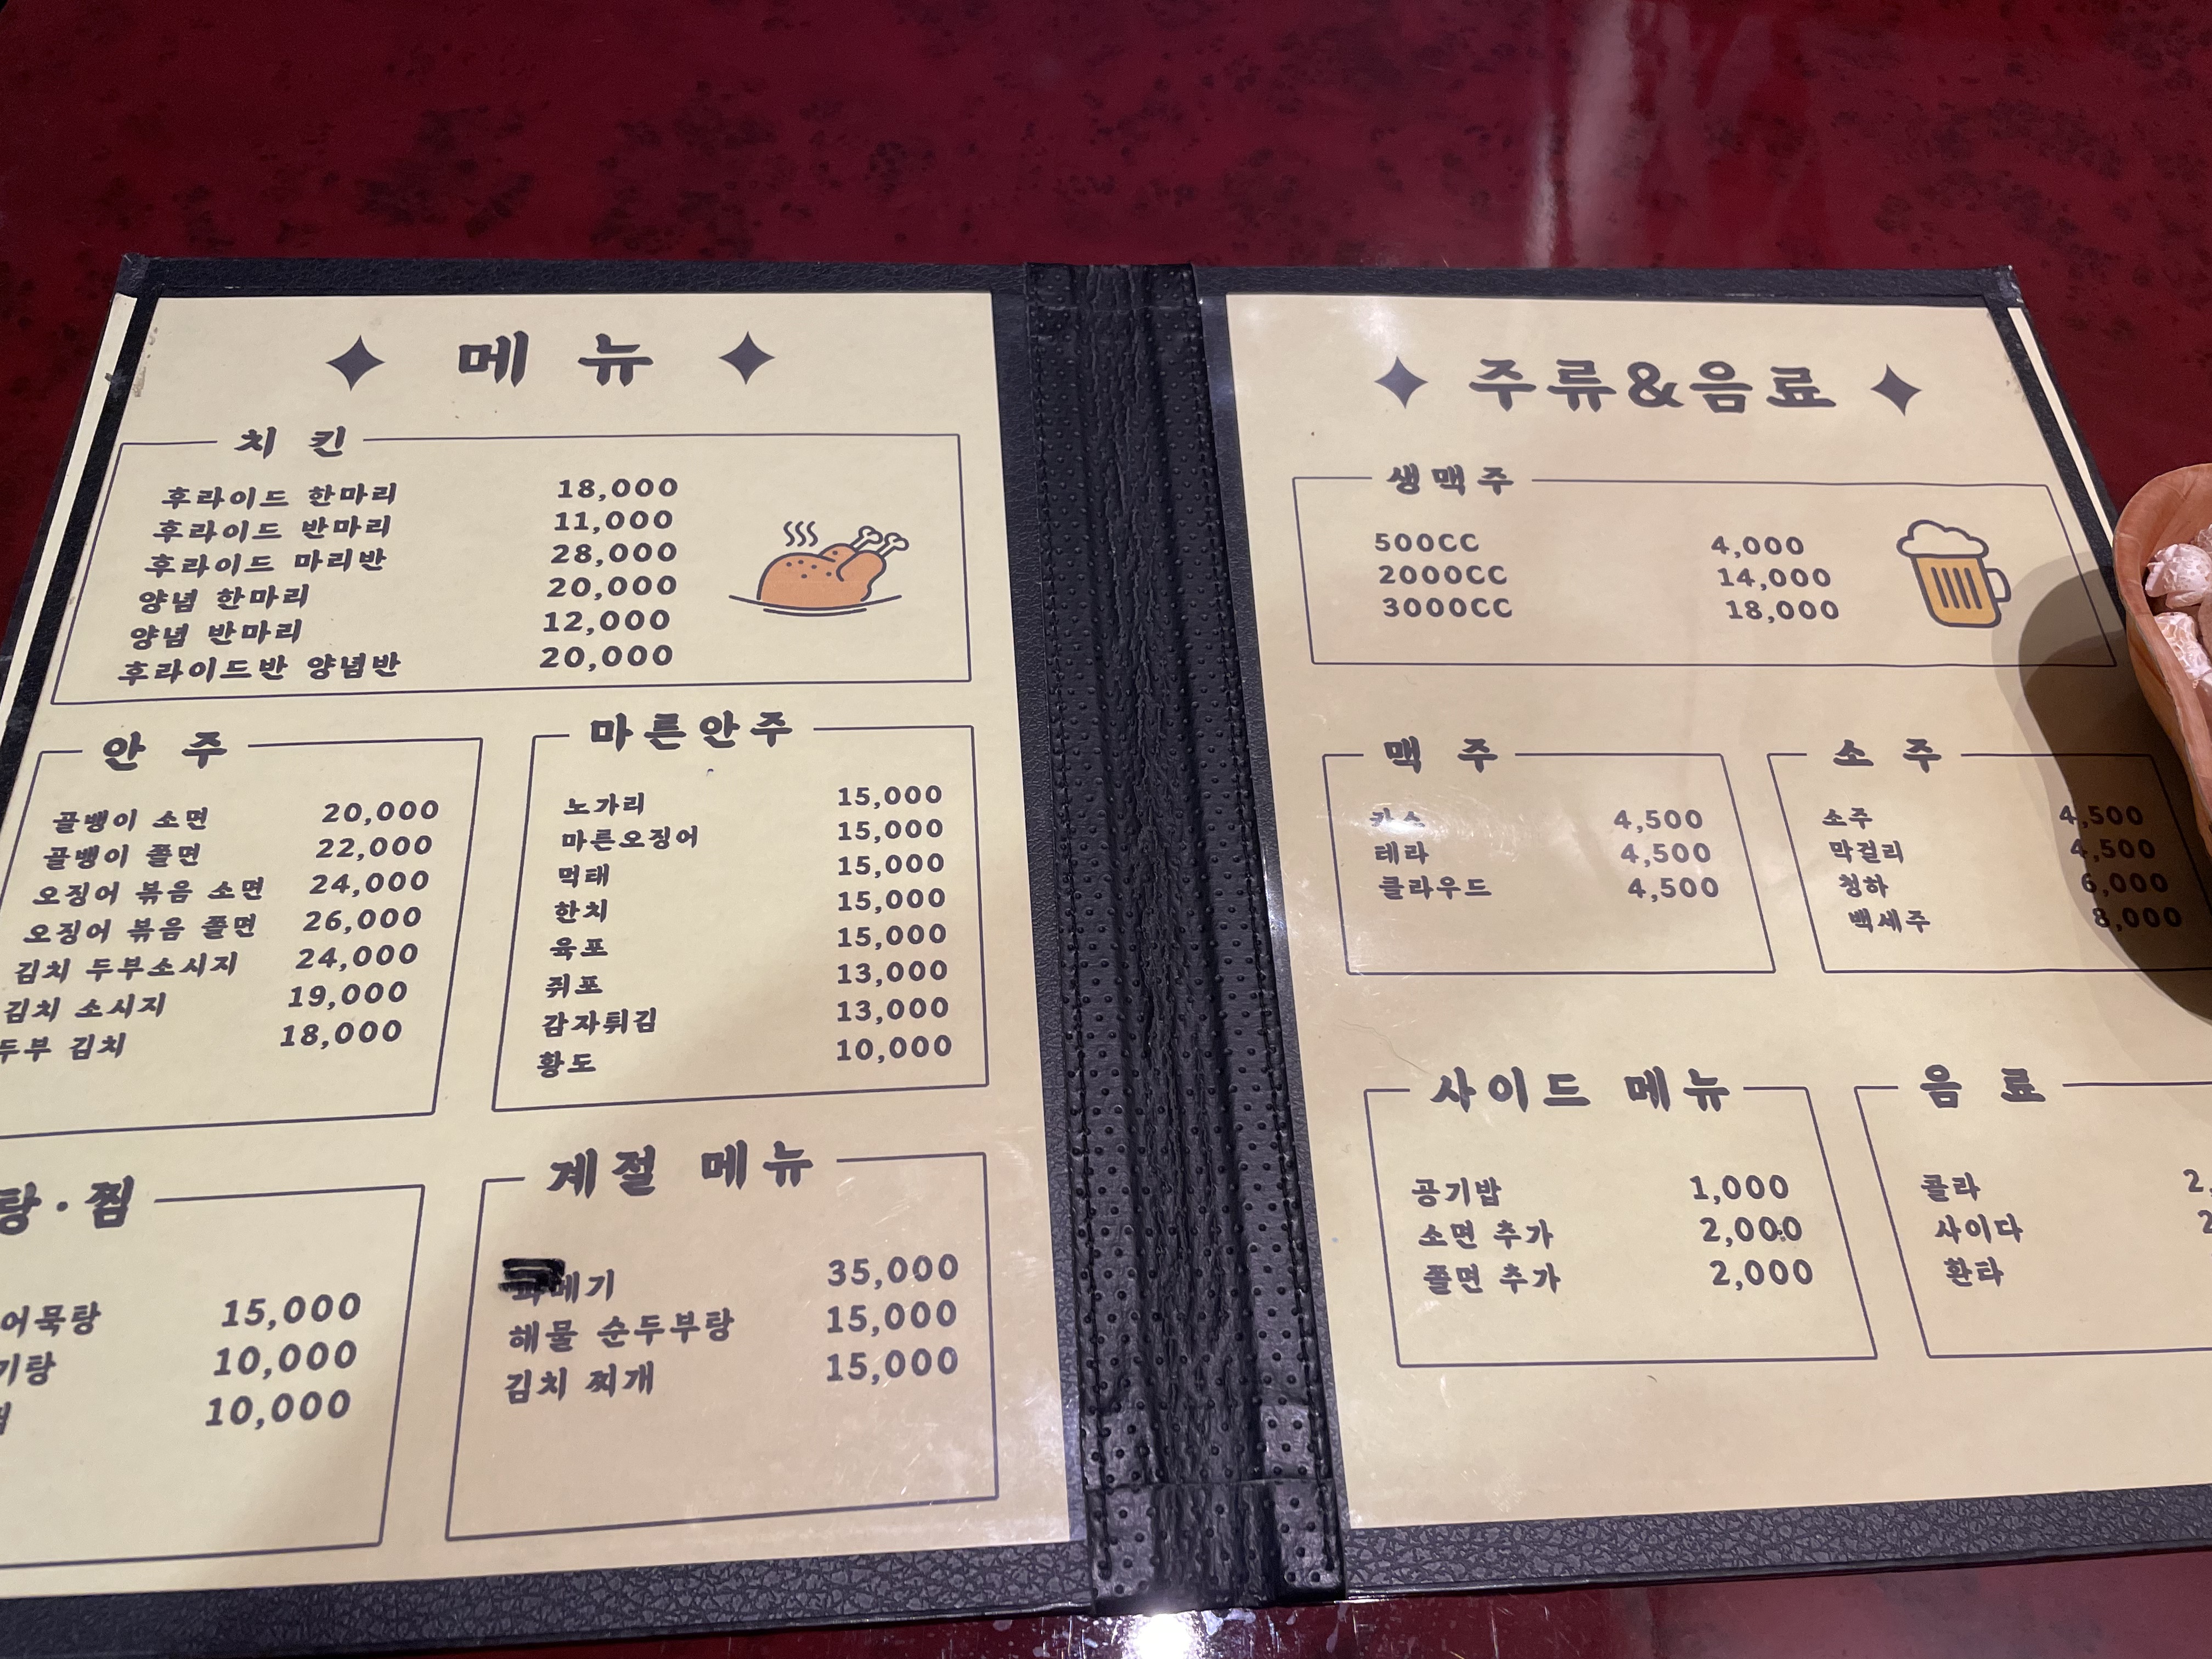 메뉴
치킨
후라이드 한마리 18,000
후라이드 반마리 11,000
후라이드 마리반 28,000
양념 한마리 20,000
양념 반마리 12,000
후라이드반 양념반 20,000
안주
골뱅이 소면 20,000
골뱅이 쫄면 22,000
오징어 볶음 소면 24,000
오징어 볶음 쫄면 26,000
김치 두부소시지 24,000
김치 소시지 19,000
두부 김치 18,000
마른안주
노가리 15,000
마른오징어 15,000
먹태 15,000
한치 15,000
육포 15,000
쥐포 13,000
감자튀김 13,000
황도 10,000
탕·찜
어묵탕 15,000
기탕 10,000
10,000
계절 메뉴
메기 35,000
해물 순두부탕 15,000
김치 찌개 15,000
주류&음료
생맥주
500CC 4,000
2000CC 14,000
3000CC 18,000
맥주
카스 4,500
테라 4,500
클라우드 4,500
소주
소주 4,500
막걸리 4,500
청하 6,000
백세주 8,000
사이드 메뉴
공기밥 1,000
소면 추가 2,000
쫄면 추가 2,000
음료
콜라 2,
사이다 2
환타